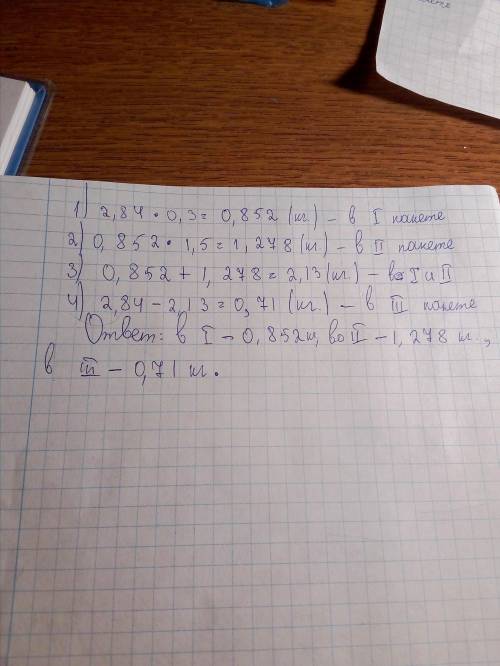 1) 2,84 • 0,3 = 0,852 (кг.) – в I пакете
2) 0,852 • 1,5 = 1,278 (кг.) – в II пакете
3) 0,852 + 1,278 = 2,13 (кг.) – в I и II
4) 2,84 – 2,13 = 0,71 (кг.) – в III пакете
Ответ: в I – 0,852 кг, во II – 1,278 кг.,
в III – 0,71 кг.